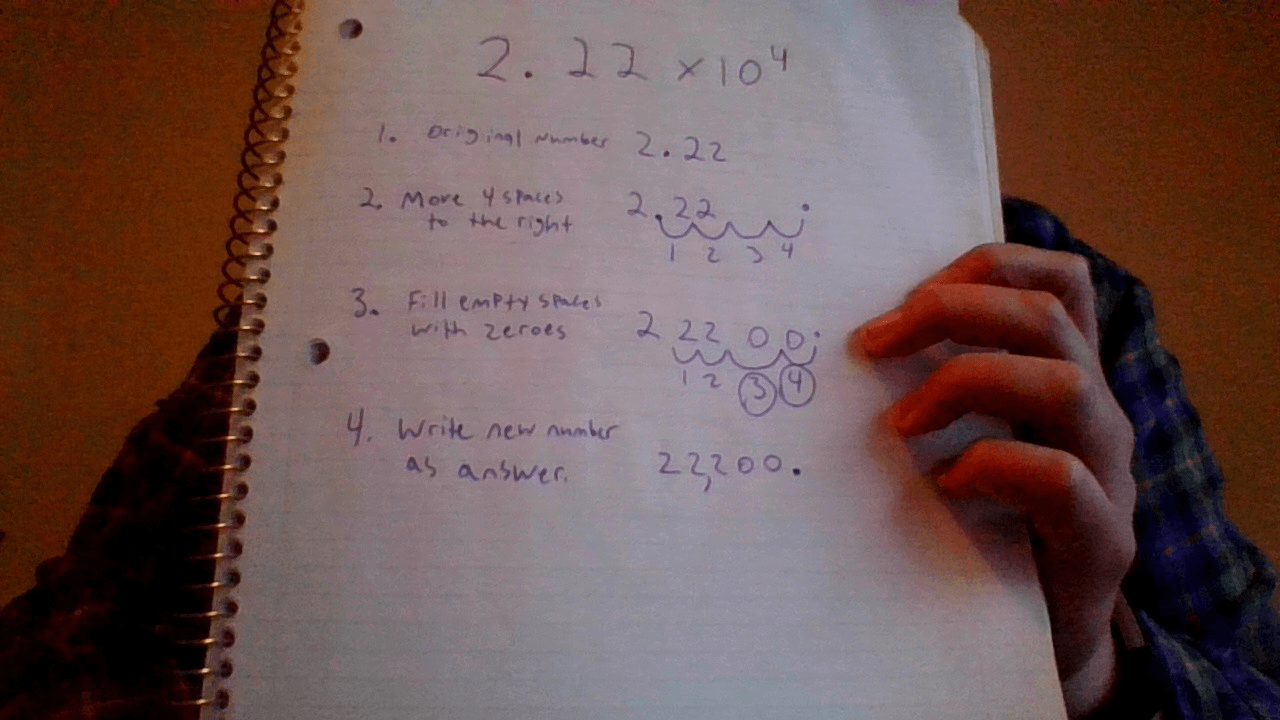 2.22 ×10⁴
1. Original Number 2.22
2. Move 4 spaces
to the right
2.22 .
1 2 3 4
3. Fill empty spaces
with zeroes
2 22 00.
1 2 3 4
4. Write new number
as answer.
22,200.